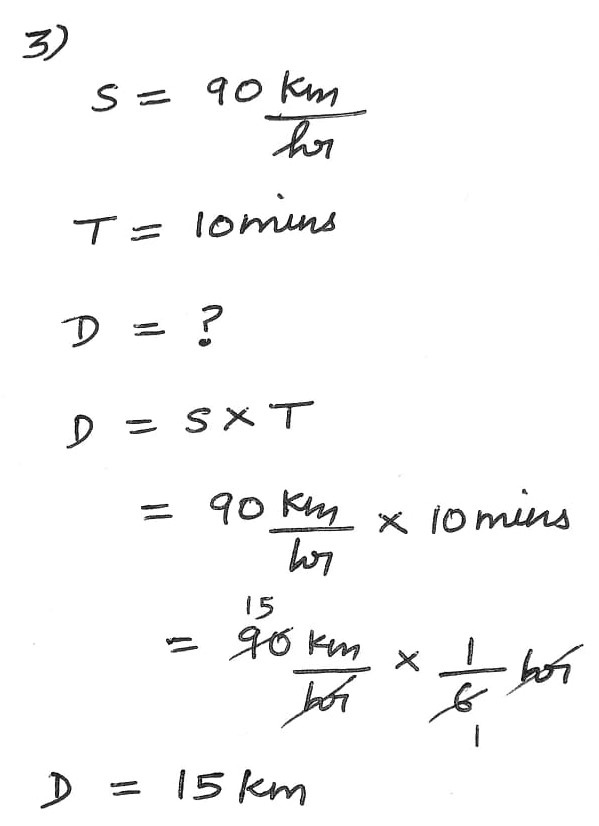 3)
S = 90 km
hr
T = 10 mins
D = ?
D = S × T
= 90 km × 10 mins
hr
15
= 90 km × 1 hr
hr 6
1
D = 15 km